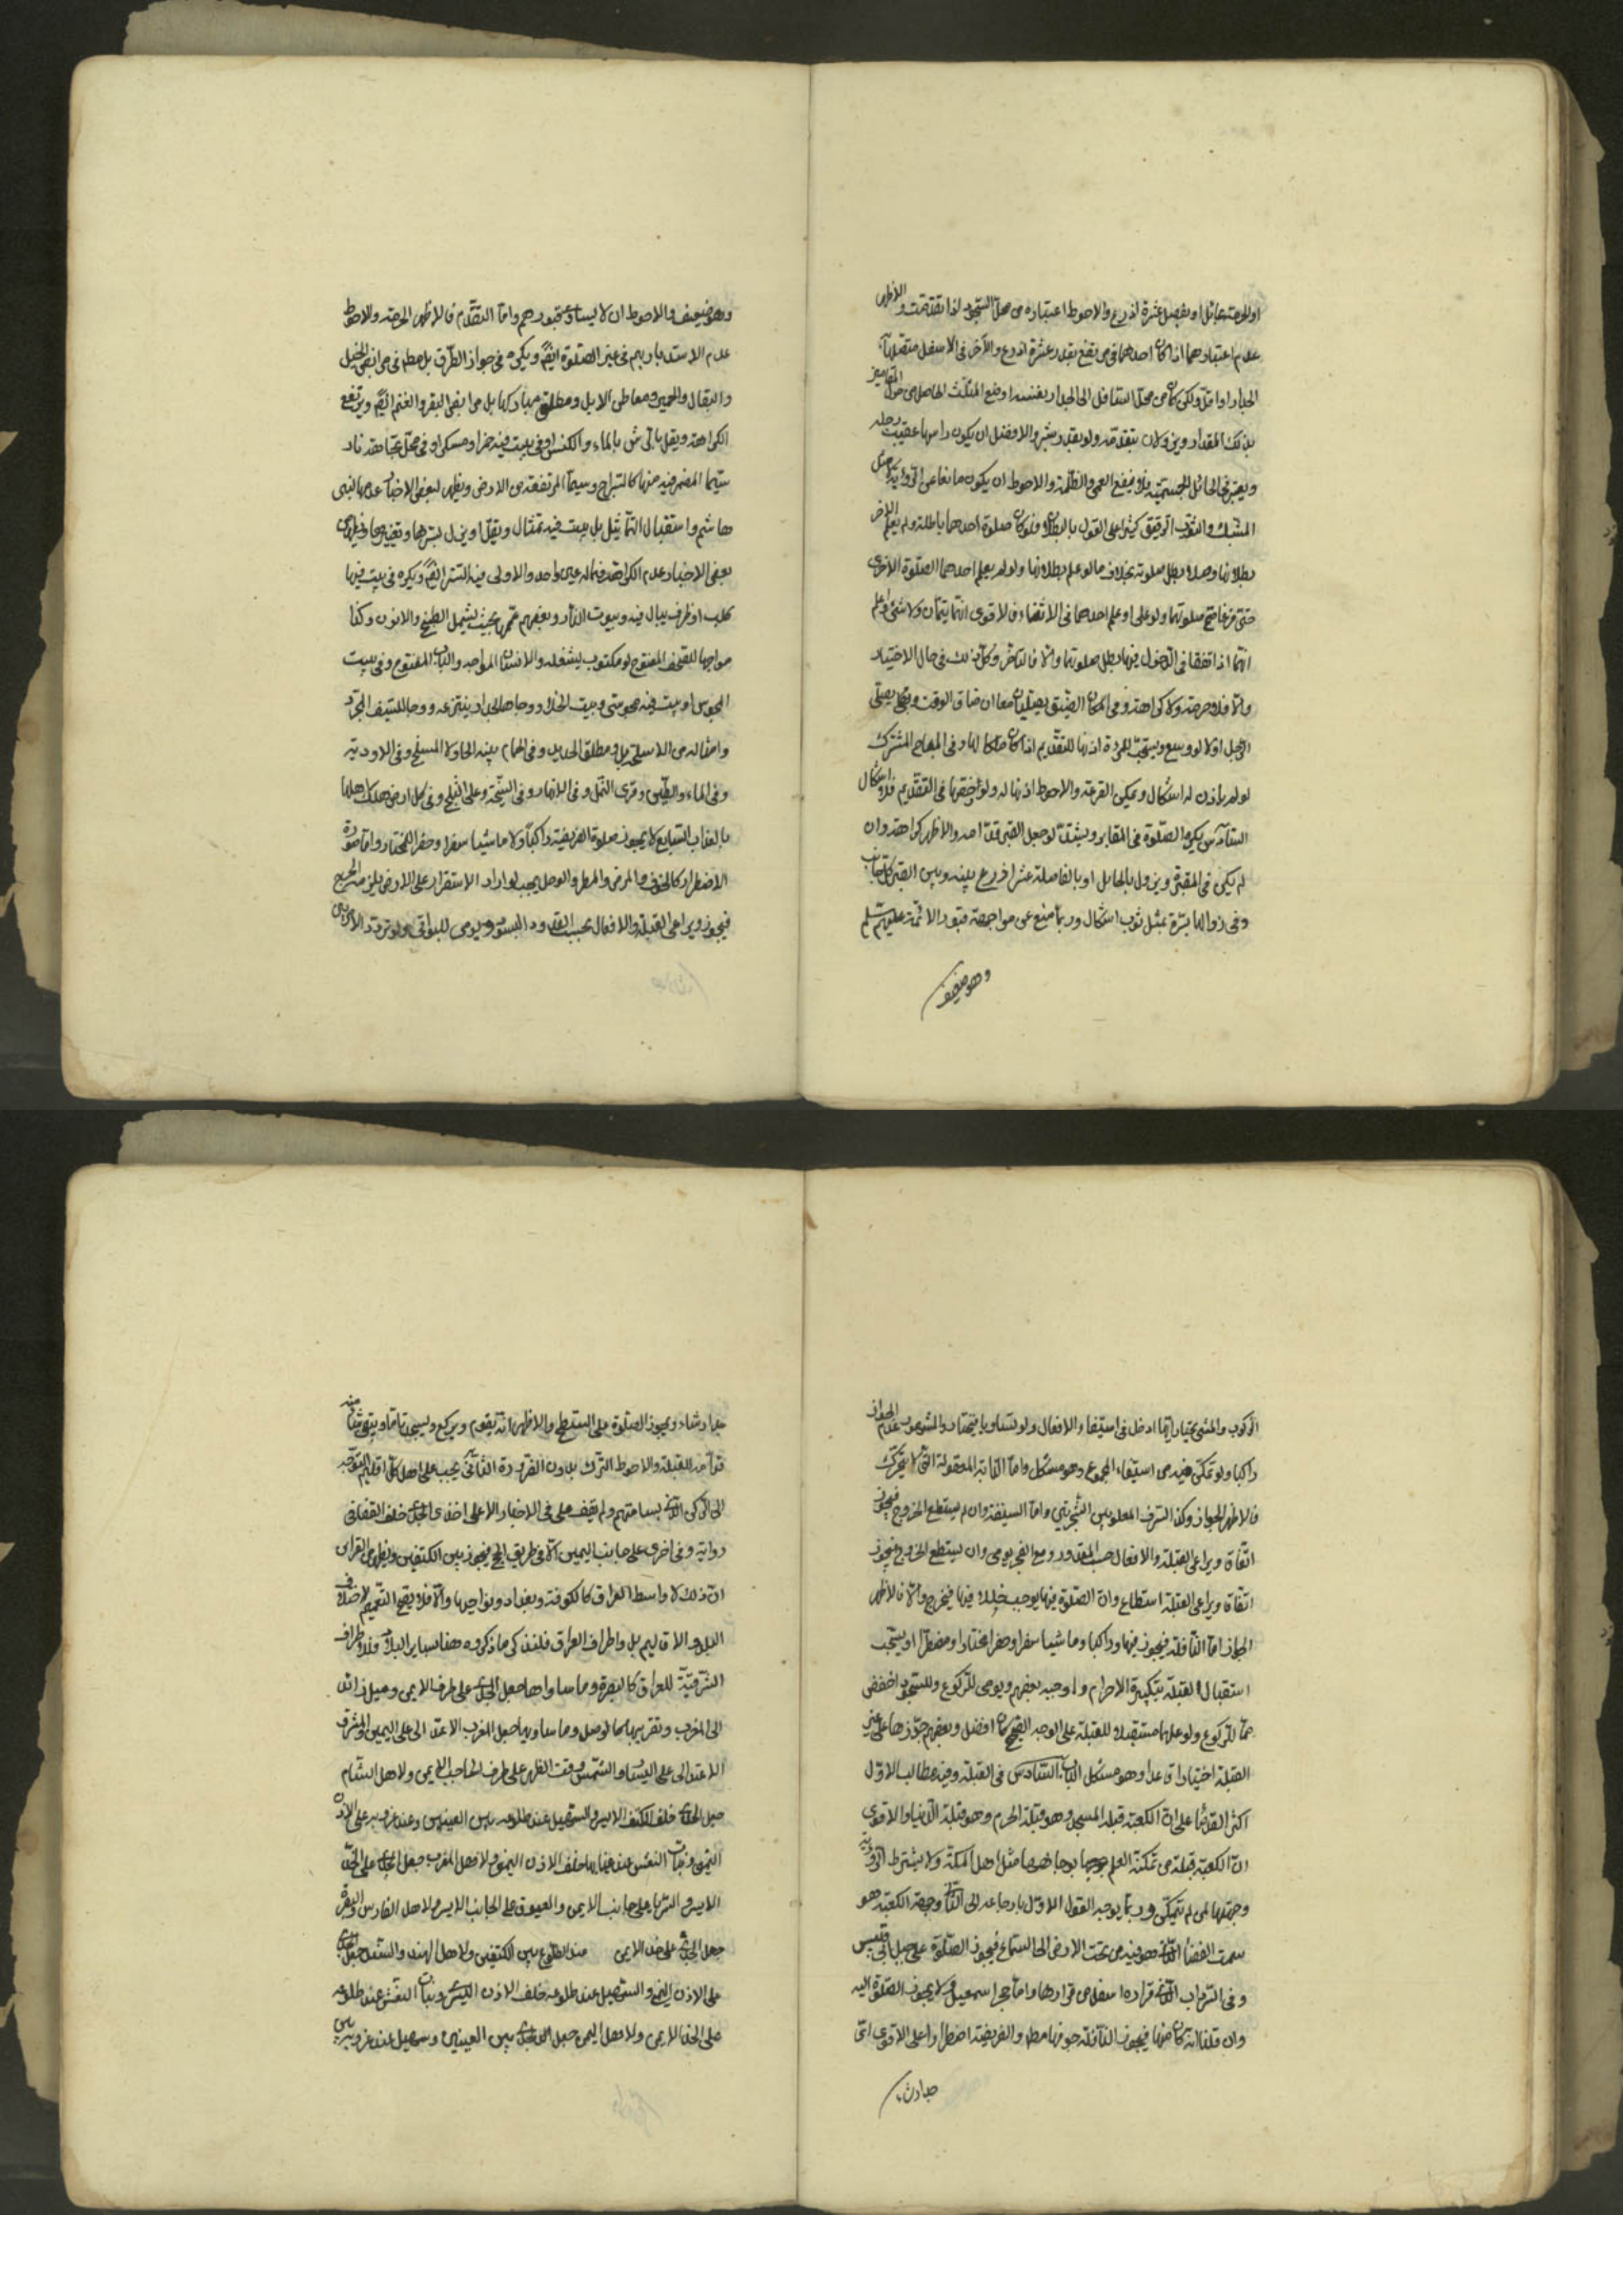 او الحرمة بحائل او بفصل عشرة اذرع والاحوط اعتباره من محل السجود اذا تقدمت والاظهر
عدم اعتبارهما اذا كان احدهما في مرتفع بقدر عشرة اذرع والآخر في الاسفل متصلا
الجدار او اقل ولكن كان من محل السافل الى الجدار بفضل الحاصل من
بذلك المقدار ويزولان بتقدمه ولو بقدر شبر والافضل ان يكون راسها عقيب رجله
ويعتبر في الحائل الجسمية فلا ينفع العمى والظلمة والاحوط ان يكون مانعا عن الرؤية
المشبك والثوب الرقيق على القول بالبطلان فلو كان صلوة احدهما باطلة ولم يعلم الاخر
بطلانها وصلا بطل صلوته بخلاف ما لو علم بطلانها ولو لم يعلم احدهما الصلوة الاخرى
حتى فرغا صح صلوتهما ولو علم احدهما في الاثناء فالاقوى انهما يتمان ولا شيء ولو علم
انهما اذا اتفقا في الدخول فيها بطل صلوتهما والا فالمتاخر وكل ذلك في حال الاختيار
والا فلا حرمة ولا كراهة وفي المكان الضيق يصليان معا ان ضاق الوقت والا يصلي
الرجل اولا لو وسع ويستحب للمرءة اذنها للتقديم اذا كان ملكا لها وفي المباح المشترك
لو لم ياذن له اشكال ويمكن القرعة والاحوط اذنها له ولو في التقديم فلا اشكال
السادس يكره الصلوة في المقابر ويشتد لو جعل القبر قدامه والاظهر كراهته وان
لم يكن في المقبرة ويزول بالحايل او بالفاصلة عشر اذرع بينه وبين القبر من كل جانب
وفي زوالها بسترة بمثل ثوب اشكال وربما منع عن مواجهة قبور الائمة عليهم السلم
وهو ضعيف
وهو ضعيف والاحوط ان لا يساوي قبورهم واما التقدم فالاظهر الحرمة والاحوط
عدم الاستدبار بهم في غير الصلوة ايضا ويكره في جواد الطرق بل مطلقا في مرابض الخيل
والبغال والحمير ومعاطن الابل ومطلق مباركها بل مرابض البقر والغنم ايضا ويرتفع
الكراهة ويقل بالرش بالماء والكنس او في بيت فيه خمر او مسكر او في محل تجاهه نار
سيما المضرم فيه منها كالسراج وسيما المرتفعة من الارض ويظهر لبعض الاخبار عدمها لبني
هاشم واستقبال التماثيل بل بيت فيه تمثال ويقل او يزول بسترها وتغييرها ويظهر من
بعض الاخبار عدم الكراهة فيما له عين واحد والاولى فيه الستر ايضا ويكره في بيت فيها
كلب او ظرف يبال فيه وبيوت النار وبعضهم عممها بحيث يشمل الطبخ والاتون وكذا
مواجها للمصحف المفتوح او مكتوب يشغله والانسان المواجه والباب المفتوح وفي بيت
المجوس او بيت فيه مجوسي وبيت الخلاء ومواجها لجدار ينز منه ومواجها للسيف المجرد
وامثاله من الاسلحة بل ومطلق الحديد وفي الحمام بيته الحار لا المسلخ وفي الاودية
وفي الماء والطين وقرى النمل وفي الانهار وفي السبخة وعلى الثلج وفي كل ارض هلك اهلها
بالعذاب السابع لا يجوز صلوة الفريضة راكبا ولا ماشيا سفرا وحضرا للمختار واما صورة
الاضطرار كالخوف والمرض والمطر والوحل يجب لو اراد الاستقرار على الارض
فيجوز ويراعي القبلة والافعال بحسب المقدور الميسور ويومي للبواقي ولو تردد الامر بين
الركوب والمشي يختار ايهما ادخل في استيفاء الافعال ولو تساويا فيختار والمشهور عدم الجواز
راكبا ولو تمكن فيه من استيفاء المجموع وهو مشكل واما الدابة المعقولة التي لا تتحرك
فالاظهر الجواز وكذا الرف المعلق بين الشجرتين واما السفينة وان لم يستطع الخروج فيجوز
اتفاقا ويراعي القبلة والافعال حسب المقدور ومع العجز يومي وان يستطع الخروج فيجوز
اتفاقا ويراعي القبلة استطاع وان الصلوة فيها يوجب خللا فيها فيخرج والا فالاظهر
الجواز اما النافلة فيجوز فيها وراكبا وماشيا سفرا وحضرا مختارا ومضطرا ويستحب
استقبال القبلة بتكبيرة الاحرام واوجبه بعضهم ويومي للركوع وللسجود اخفض
مما للركوع ولو عملها مستقبلا للقبلة على الوجه الصحيح كان افضل وبعضهم جوزها على غير
القبلة اختيارا قاعدا وهو مشكل الباب السادس في القبلة وفيه مطالب الاول
اكثر القدماء على ان الكعبة قبلة المسجد وهو قبلة الحرم وهو قبلة الدنيا والاقوى
ان الكعبة قبلة من تمكنه العلم بها مثل اهل المكة ولا يشترط الرؤية
وجهتها لمن لم يتمكن وربما يوجه القول الاول بارجاعه الى الثاني وجهة الكعبة هو
سمت الفضاء الذي هو فيه من تحت الارض الى السماء فيجوز الصلوة على جبل ابي قبيس
وفي السرداب الذي قراره اسفل من قرارها واما حجر اسمعيل فلا يجوز الصلوة اليه
وان قلنا انه كان منها فيجوز النافلة جوفها مطلقا والفريضة اضطرارا على الاقوى الى اي
جدار شاء
جدار شاء ويجوز الصلوة على السطح والاظهر انه يقوم ويركع ويسجد تاما ويبقي شيئا منه
قدامه للقبلة والاحوط الترك بدون الضرورة الثاني يجب على اهل كل اقليم التوجه
الى الركن الذي بسامتهم ولم يقف على في الاخبار الا على اخذ الجدي خلف القفا في
رواية وفي اخرى على جانب اليمين الا في طريق الحج فيجوز بين الكتفين ويظهر من القرائن
ان ذلك لاواسط العراق كالكوفة وبغداد ونواحيها والا فلا يصح التعميم لاختلاف
البلاد والاقاليم بل واطراف العراق فلنذكر ما ذكروه هنا لساير البلاد فلاطراف
الشرقية للعراق كالبصرة وما ساواها جعل الجدي على طرف الايمن وميل زائد
الى المغرب وتقريبها كالموصل وما ساويها جعل المغرب الاعتدالي على اليمين والمشرق
الاعتدالي على اليسار والشمس وقت الظهر على طرف الحاجب الايمن ولاهل الشام
جعل الجدي خلف الكتف الايسر والسهيل عند طلوعه بين العينين وعند غروبه على الاذن
اليمنى وبنات النعش عند غيابها خلف الاذن اليمنى ولاهل المغرب جعل الجدي على الخد
الايسر والثريا على جانب الايمن والعيوق على الجانب الايسر ولاهل الفارس والبصرة
جعل الجدي على خد الايمن عند الطلوع بين الكتفين ولاهل الهند والسند جعل الجدي
على الاذن اليمنى والسهيل عند طلوعه خلف الاذن اليسرى وبنات النعش عند طلوعه
على الخد الايمن ولاهل اليمن جعل الجدي بين العينين وسهيل عند غروبه بين